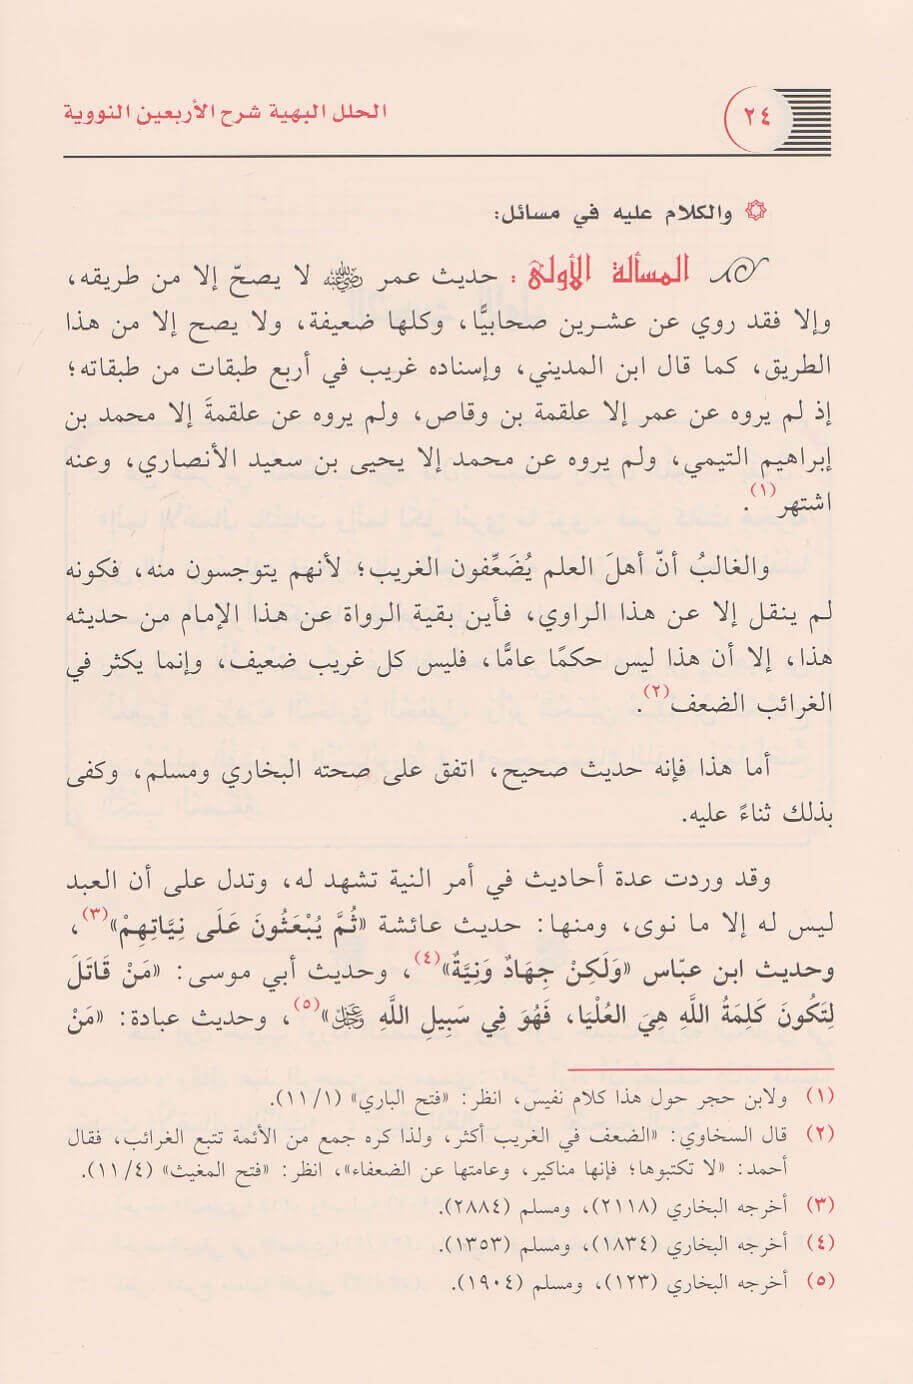 ٢٤
الحلل البهية شرح الأربعين النووية
والكلام عليه في مسائل:
المسألة الأولى: حديث عمر رضي الله عنه لا يصحّ إلا من طريقه،
وإلا فقد روي عن عشرين صحابيًّا، وكلها ضعيفة، ولا يصح إلا من هذا
الطريق، كما قال ابن المديني، وإسناده غريب في أربع طبقات من طبقاته؛
إذ لم يروه عن عمر إلا علقمة بن وقاص، ولم يروه عن علقمةَ إلا محمد بن
إبراهيم التيمي، ولم يروه عن محمد إلا يحيى بن سعيد الأنصاري، وعنه
اشتهر(١).
والغالبُ أنّ أهلَ العلم يُضَعِّفون الغريب؛ لأنهم يتوجسون منه، فكونه
لم ينقل إلا عن هذا الراوي، فأين بقية الرواة عن هذا الإمام من حديثه
هذا، إلا أن هذا ليس حكمًا عامًّا، فليس كل غريب ضعيف، وإنما يكثر في
الغرائب الضعف(٢).
أما هذا فإنه حديث صحيح، اتفق على صحته البخاري ومسلم، وكفى
بذلك ثناءً عليه.
وقد وردت عدة أحاديث في أمر النية تشهد له، وتدل على أن العبد
ليس له إلا ما نوى، ومنها: حديث عائشة «ثُمَّ يُبْعَثُونَ عَلَى نِيَّاتِهِمْ»(٣)،
وحديث ابن عبّاس «وَلَكِنْ جِهَادٌ وَنِيَّةٌ»(٤)، وحديث أبي موسى: «مَنْ قَاتَلَ
لِتَكُونَ كَلِمَةُ اللَّهِ هِيَ العُلْيَا، فَهُوَ فِي سَبِيلِ اللَّهِ عز وجل»(٥)، وحديث عبادة: «مَنْ
(١) ولابن حجر حول هذا كلام نفيس، انظر: «فتح الباري» (١١/١).
(٢) قال السخاوي: «الضعف في الغريب أكثر، ولذا كره جمع من الأئمة تتبع الغرائب، فقال
أحمد: «لا تكتبوها؛ فإنها مناكير، وعامتها عن الضعفاء»، انظر: «فتح المغيث» (١١/٤).
(٣) أخرجه البخاري (٢١١٨)، ومسلم (٢٨٨٤).
(٤) أخرجه البخاري (١٨٣٤)، ومسلم (١٣٥٣).
(٥) أخرجه البخاري (١٢٣)، ومسلم (١٩٠٤).